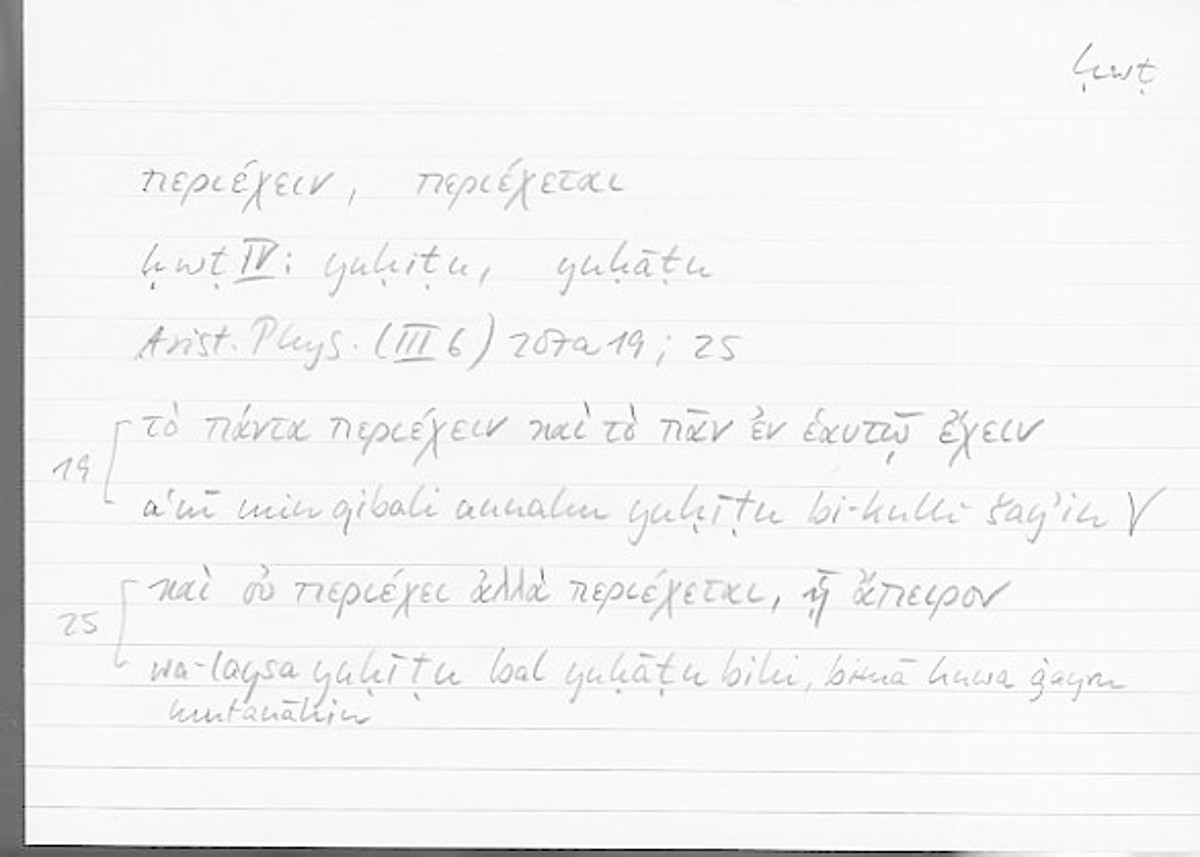 ḥwṭ
περιέχειν, περιέχεται
ḥwṭ IV: yuḥiṭu, yuḥāṭu
Arist. Phys. (III 6) 207a19; 25
19 τὸ πάντα περιέχειν καὶ τὸ πᾶν ἐν ἑαυτῷ ἔχειν
aʿnī min qibali annahu yuḥīṭu bi-kulli šayʾin V
25 καὶ οὐ περιέχει ἀλλὰ περιέχεται, ᾗ ἄπειρον
wa-laysa yuḥīṭu bal yuḥāṭu bihi, bimā huwa ġayru
mutanāhin